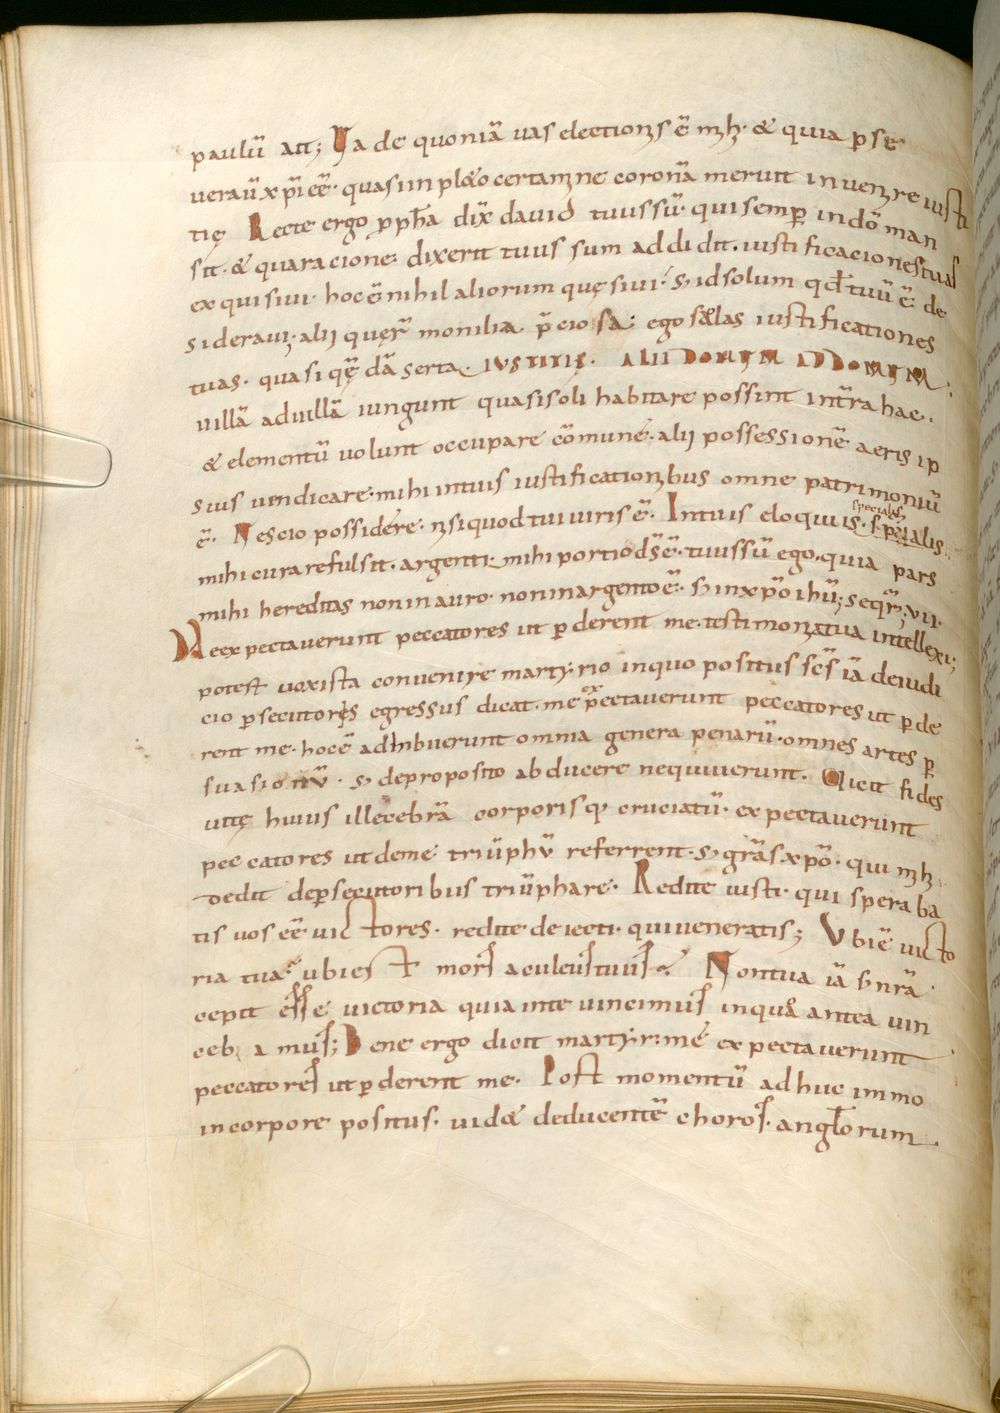 paulū ait; Va de quoniā uas electionis ē mihi· & quia p̱ se
uerau̅ xp̄i eē· quasi inpl&o certamine coronā meruit inuenire iusti
tię Recte ergo pp̄ha dix̄ dauid tuus sū· qui semp̱ in dō man
sit· & qua racione dixerit tuus sum addidit· iustificaciones tuas
exquisiui· hoc ē nihil aliorum quęsiui· s; id solum qd̄ tuū ē de
siderauí· alij quęr̄ monilia p̄ciosa· ego s&las iustificationes
tuas· quasi quędā serta· iustitię· ALII DOMUM AD DOMUM·
uillā ad uillā iungunt quasi soli habitare possint in tr̄a hac·
& elementū uolunt occupare cōmune· alij possessionē aeris ip
sius uindicare· mihi in tuis iustificationibus omne patrimoniū
ē· Nescio possidere· nisi quod tui iuris ē· In tuis eloquiis· specialis
specialis
mihi cura refulsit· argenti· mihi portio d̄s ē· tuus sū ego· quia pars
mihi hereditas non in auro· non in argento ē· s; in xp̄o ihū; seqr̄· vii·
Me expectauerunt peccatores ut p̱derent me· testimonia tua intellexi;
potest uox ista conuenire martyrio in quo positus sc̄s iā de iudi
cio p̱secutoris egressus dicat· me expectauerunt peccatores ut p̱de
rent me· hoc ē adhibuerunt omnia genera penarū· omnes artes p̱
suasionū· s; de proposito abducere nequiuerunt· Vicit fides
uitę huius illecebrā corporisq; cruciatū· expectauerunt
peccatores ut de me triūphū referrent· s; gr̄as xp̄o· qui mihi
dedit de p̱secutoribus triūphare· Redite iusti· qui speraba
tis uos eē uictores· redite deiecti· qui ueneratis; Vbi ē uicto
ria tua? ubi est mors aculeus tuus? Non tua iā s; nr̄a
cepit esse uictoria quia in te uincimus in qua antea uin
ceb a mus; Bene ergo dicit martyr· me expectauerunt
peccatores ut p̱derent me· Post momentū adhuc immo
in corpore positus· uid& deducentē choros· anglorum·